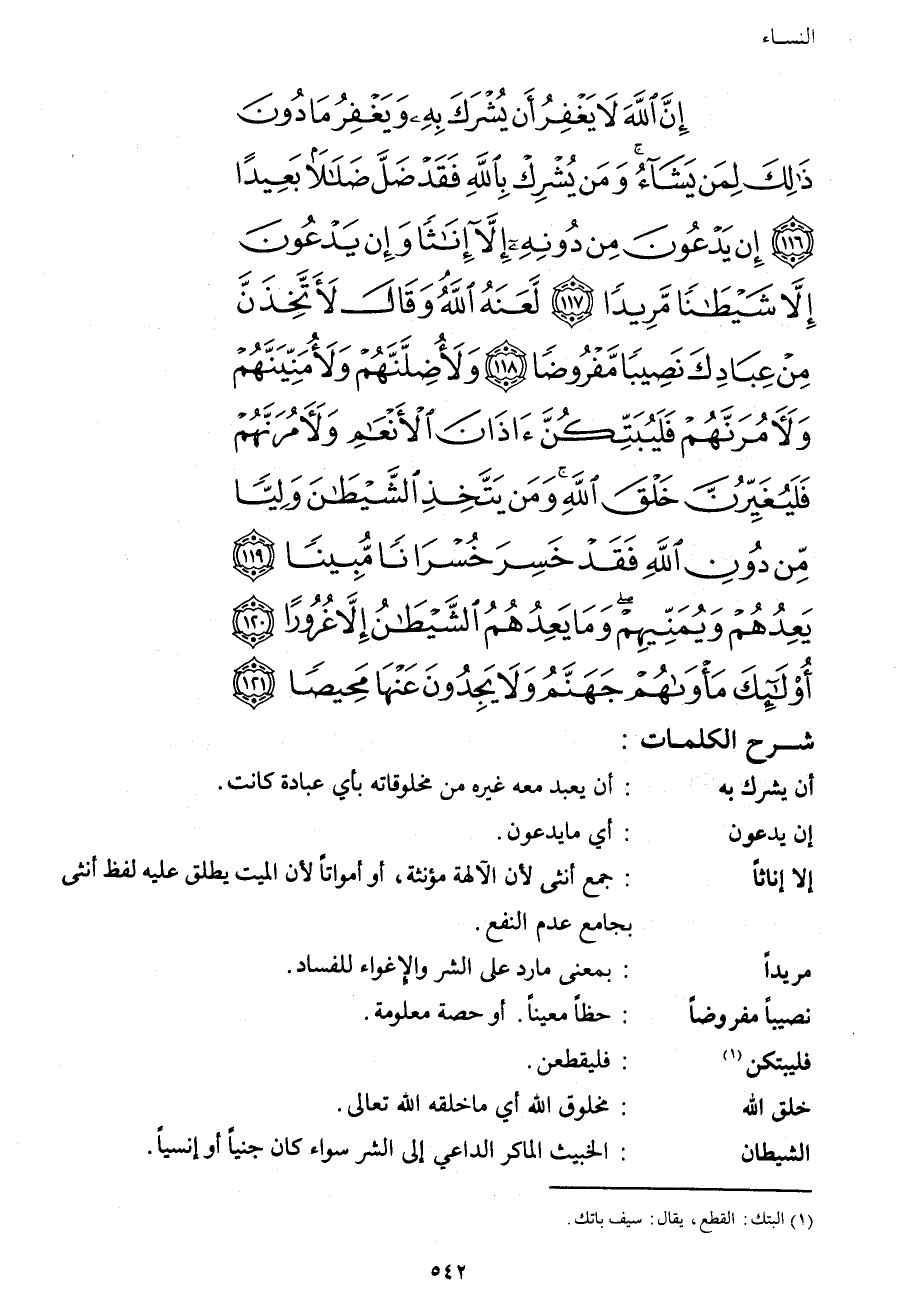 النساء
إِنَّ ٱللَّهَ لَا يَغْفِرُ أَن يُشْرَكَ بِهِۦ وَيَغْفِرُ مَا دُونَ
ذَٰلِكَ لِمَن يَشَآءُ ۚ وَمَن يُشْرِكْ بِٱللَّهِ فَقَدْ ضَلَّ ضَلَٰلًۢا بَعِيدًا
﴿١١٦﴾ إِن يَدْعُونَ مِن دُونِهِۦٓ إِلَّآ إِنَٰثًا وَإِن يَدْعُونَ
إِلَّا شَيْطَٰنًا مَّرِيدًا ﴿١١٧﴾ لَّعَنَهُ ٱللَّهُ ۘ وَقَالَ لَأَتَّخِذَنَّ
مِنْ عِبَادِكَ نَصِيبًا مَّفْرُوضًا ﴿١١٨﴾ وَلَأُضِلَّنَّهُمْ وَلَأُمَنِّيَنَّهُمْ
وَلَءَامُرَنَّهُمْ فَلَيُبَتِّكُنَّ ءَاذَانَ ٱلْأَنْعَٰمِ وَلَءَامُرَنَّهُمْ
فَلَيُغَيِّرُنَّ خَلْقَ ٱللَّهِ ۚ وَمَن يَتَّخِذِ ٱلشَّيْطَٰنَ وَلِيًّا
مِّن دُونِ ٱللَّهِ فَقَدْ خَسِرَ خُسْرَانًا مُّبِينًا ﴿١١٩﴾
يَعِدُهُمْ وَيُمَنِّيهِمْ ۖ وَمَا يَعِدُهُمُ ٱلشَّيْطَٰنُ إِلَّا غُرُورًا ﴿١٢٠﴾
أُو۟لَٰٓئِكَ مَأْوَىٰهُمْ جَهَنَّمُ وَلَا يَجِدُونَ عَنْهَا مَحِيصًا ﴿١٢١﴾
شرح الكلمات :
أن يشرك به : أن يعبد معه غيره من مخلوقاته بأي عبادة كانت.
إن يدعون : أي مايدعون.
إلا إناثاً : جمع أنثى لأن الآلهة مؤنثة، أو أمواتاً لأن الميت يطلق عليه لفظ أنثى
بجامع عدم النفع.
مريداً : بمعنى مارد على الشر والإغواء للفساد.
نصيباً مفروضاً : حظاً معيناً. أو حصة معلومة.
فليبتكن (١) : فليقطعن.
خلق الله : مخلوق الله أي ماخلقه الله تعالى.
الشيطان : الخبيث الماكر الداعي إلى الشر سواء كان جنياً أو إنسياً.
(١) البتك: القطع، يقال: سيف باتك.
٥٤٢